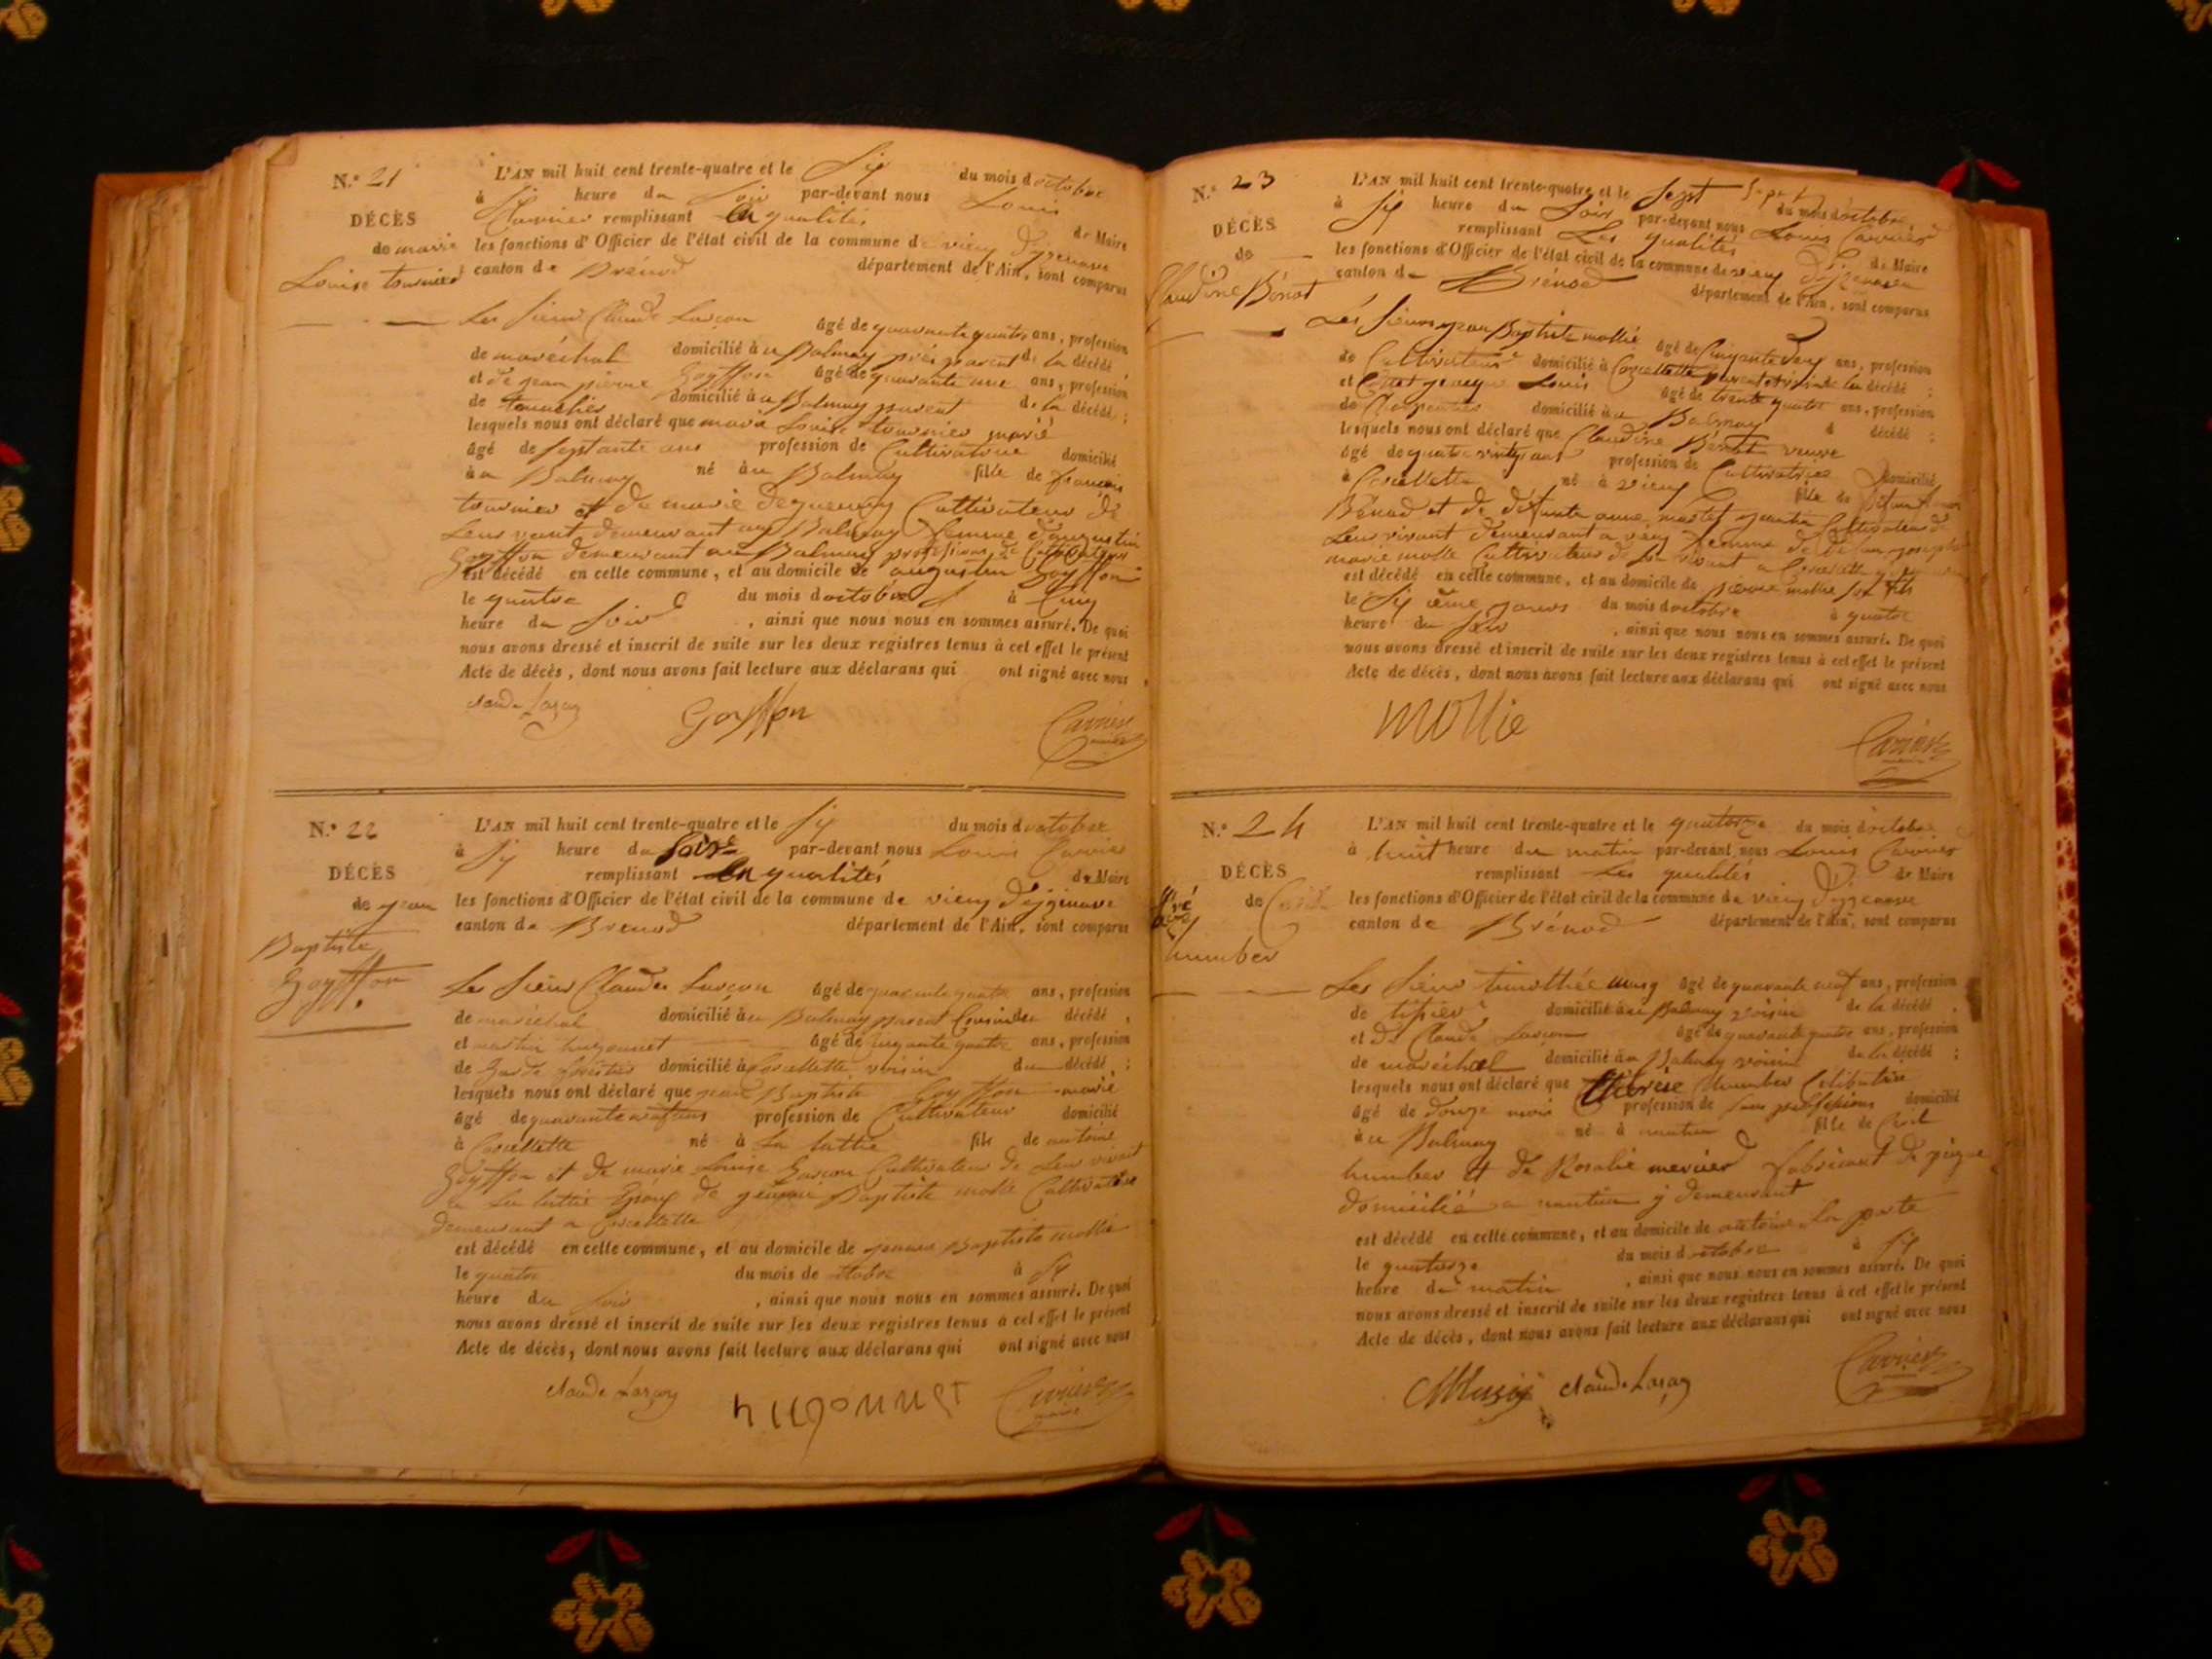 N.º 21
DÉCÈS
de marie
Louise tournier
L'AN mil huit cent trente-quatre et le Six du mois doctobre
à Six heure du Soir par-devant nous Louis
Carrier remplissant Les qualités de Maire
les fonctions d'Officier de l'état civil de la commune de vieu Dizenave
canton de Brénod département de l'Ain, sont comparus
Les Sieur Claude Larçon âgé de quarante quatre ans, profession
de maréchal domicilié au Balmay près parent de la décédé,
et de jean pierre Goyffon âgé de quarante une ans, profession
de domicilié au Balmay parent de la décédé;
lesquels nous ont déclaré que marie Louise tournier marié
âgé de septante ans profession de Cultivatrice domicilié
au Balmay né au Balmay fille de françois
tournier et de marie Cultivateur de
Leur vivant demeurant au Balmay femme d'augustin
Goyffon demeurant au Balmay profession de Cultivateur
est décédé en cette commune, et au domicile de augustin Goyffon
le quatre du mois doctobre à Cinq
heure du Soir, ainsi que nous nous en sommes assuré. De quoi
nous avons dressé et inscrit de suite sur les deux registres tenus à cet effet le présent
Acte de décès, dont nous avons fait lecture aux déclarans qui ont signé avec nous
claude Larçon Goyffon Carrier maire
N.º 22
DÉCÈS
de jean
Baptiste
Goyffon
L'AN mil huit cent trente-quatre et le Six du mois doctobre
à Six heure du Soir par-devant nous Louis Carrier
remplissant Les qualités de Maire
les fonctions d'Officier de l'état civil de la commune de vieu Dizenave
canton de Brenod département de l'Ain, sont comparus
Les Sieur Claude Larçon âgé de quarante quatre ans, profession
de maréchal domicilié au Balmay parent Cousin du décédé,
et martin hugonnet âgé de cinquante quatre ans, profession
de Garde forestier domicilié à Corcellette voisin du décédé;
lesquels nous ont déclaré que jean Baptiste Goyffon marié
âgé de quarante neuf ans profession de Cultivateur domicilié
à Corcellette né à La fils de antoine
Goyffon et de marie Louise Garçon Cultivateur de Leur vivant
a La Epoux de Baptiste molle Cultivatrice
demeurant a Corcellette
est décédé en cette commune, et au domicile de Baptiste mollie
le quatre du mois de octobre à Six
heure du soir, ainsi que nous nous en sommes assuré. De quoi
nous avons dressé et inscrit de suite sur les deux registres tenus à cet effet le présent
Acte de décès, dont nous avons fait lecture aux déclarans qui ont signé avec nous
claude Larçon hugonnet Carrier maire
N.º 23
DÉCÈS
de
Claudine Bénod
L'AN mil huit cent trente-quatre et le Sept Sept du mois doctobre
à Six heure du Soir par-devant nous Louis Carrier
remplissant Les qualités de Maire
les fonctions d'Officier de l'état civil de la commune de vieu Dizenave
canton de Brénod département de l'Ain, sont comparus
Les Sieurs jean Baptiste mollié âgé de Cinquante Deux ans, profession
de Cultivateur domicilié à Corcellette parent de la décédé;
et Louis âgé de trente quatre ans, profession
de Charpentier domicilié au Balmay d décédé;
lesquels nous ont déclaré que Claudine Bénod veuve
âgé de quatre vingt ans profession de Cultivatrice domicilié
à Corcellette né à vieu fille de Défunt
Bénod et de défunte anne Cultivateur de
Leur vivant demeurant a vieu femme de Défun joseph
marie molle Cultivateur de Son vivant a Corcellette
est décédé en cette commune, et au domicile de pierre mollie son fils
le Six ième jours du mois doctobre à quatre
heure du Soir, ainsi que nous nous en sommes assuré. De quoi
nous avons dressé et inscrit de suite sur les deux registres tenus à cet effet le présent
Acte de décès, dont nous avons fait lecture aux déclarans qui ont signé avec nous
mollie Carrier
N.º 24
DÉCÈS
de
humber
L'AN mil huit cent trente-quatre et le quatorze du mois doctobre
à huit heure du matin par-devant nous Louis Carrier
remplissant Les qualités de Maire
les fonctions d'Officier de l'état civil de la commune de vieu Dizenave
canton de Brénod département de l'Ain, sont comparus
Les Sieur timothée musy âgé de quarante neuf ans, profession
de domicilié au Balmay voisin de la décédé,
et de Claude Larçon âgé de quarante quatre ans, profession
de maréchal domicilié au Balmay voisin de la décédé;
lesquels nous ont déclaré que thérèse humber Célibataire
âgé de douze mois profession de sans profession domicilié
au Balmay né à nantua fille de
humber et de Rosalie mercier fabricant de peigne
domicilié a nantua y demeurant
est décédé en cette commune, et au domicile de antoine La porte
le quatorze du mois d octobre à Six
heure du matin, ainsi que nous nous en sommes assuré. De quoi
nous avons dressé et inscrit de suite sur les deux registres tenus à cet effet le présent
Acte de décès, dont nous avons fait lecture aux déclarans qui ont signé avec nous
Musy claude Larçon Carrier